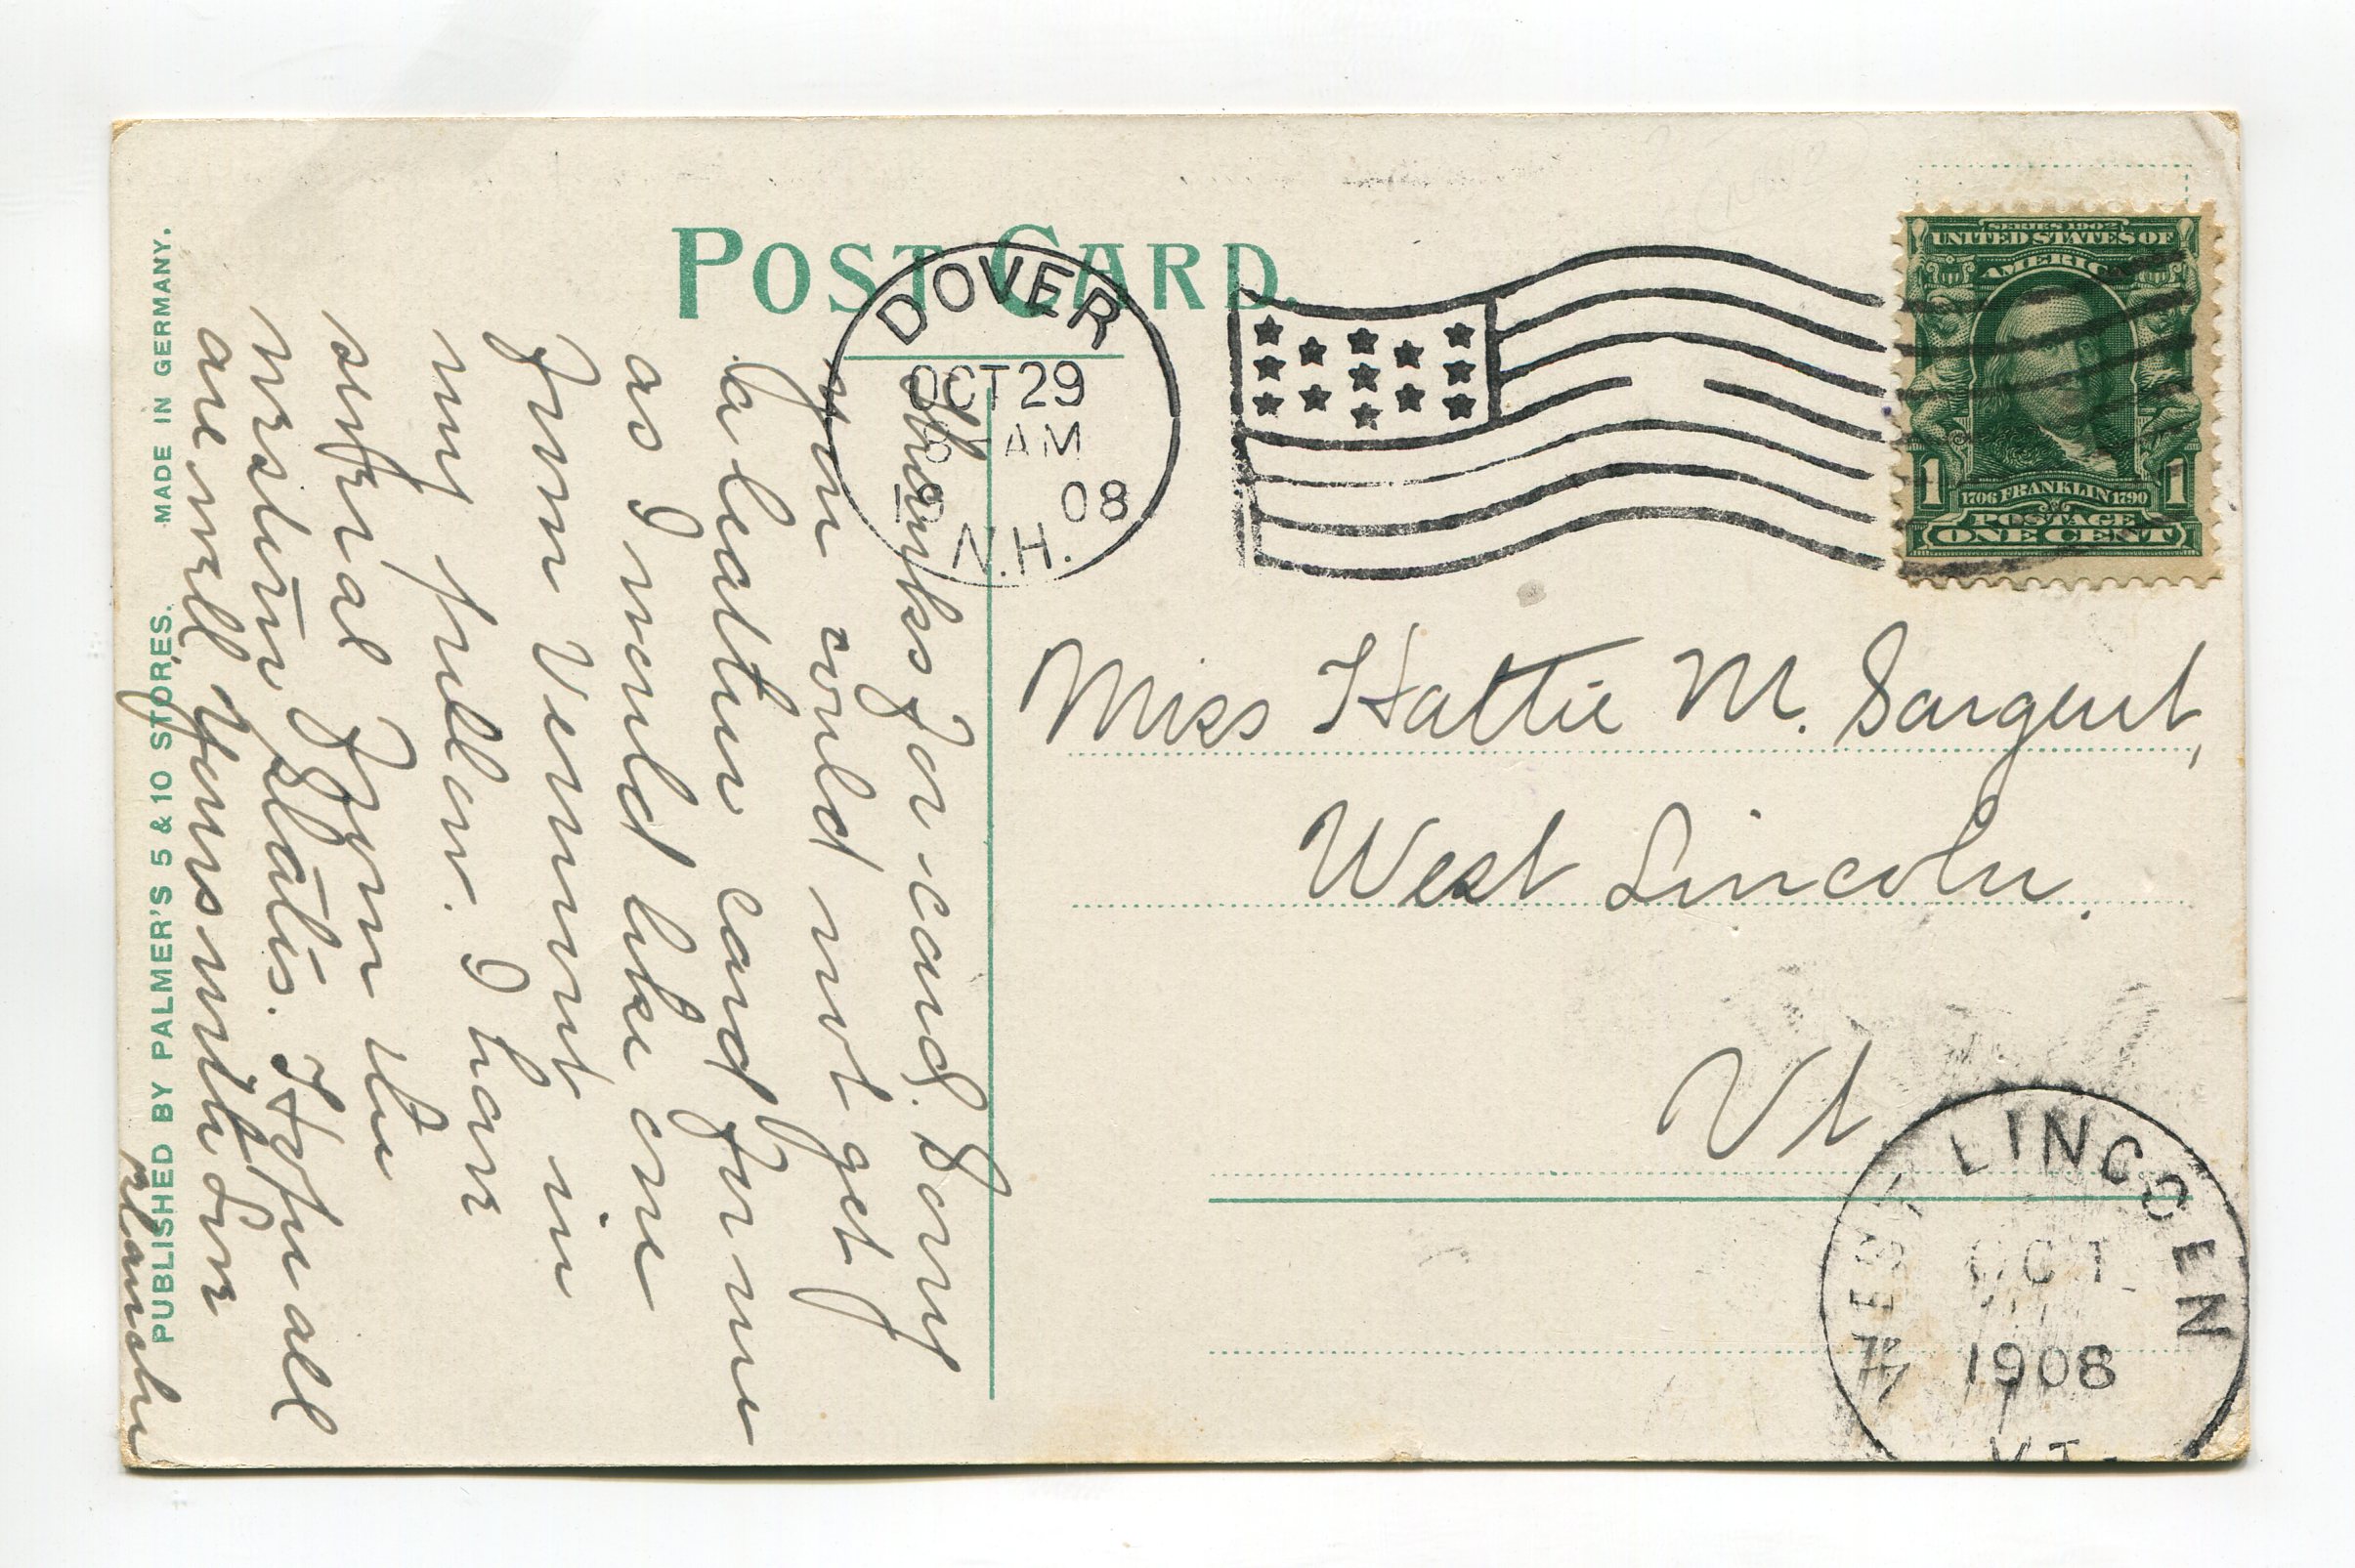 POST CARD.
DOVER
OCT 29
8 AM
19 08
N.H.
SERIES 1902
UNITED STATES OF
AMERICA
1 1
1706 FRANKLIN 1790
POSTAGE
ONE CENT
Thanks for card. Sorry
you could not get
a leather card from
as I would like one
from Vermont in
my pillow. I have
several from the
western states. Hope all
are well. Yours with love
Blanche
Miss Hattie M. Sargent,
West Lincoln.
Vt
WEST LINCOLN
OCT
1908
VT.
PUBLISHED BY PALMER'S 5 & 10 STORES. MADE IN GERMANY.